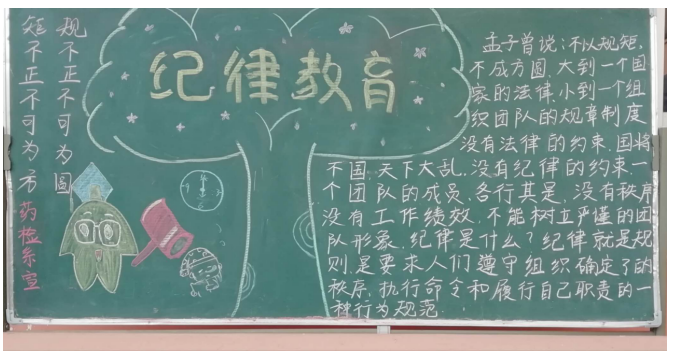 规不正不可为圆
矩不正不可为方
药检系宣
纪律教育
孟子曾说:不以规矩,
不成方圆.大到一个国
家的法律.小到一个组
织团队的规章制度
没有法律的约束.国将
不国.天下大乱.没有纪律的约束一
个团队的成员.各行其是.没有秩序
没有工作绩效.不能树立严谨的团
队形象.纪律是什么?纪律就是规
则.是要求人们遵守组织确定了的
秩序.执行命令和履行自己职责的一
种行为规范.